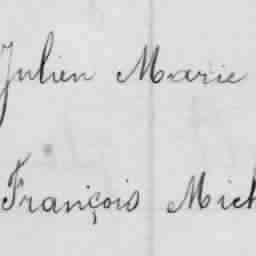 Julien Marie
François Mich